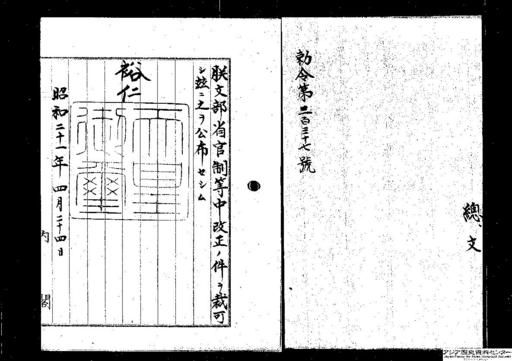 總、文
勅令第二百三十七號
朕文部省官制等中改正ノ件ヲ裁可
シ玆ニ之ヲ公布セシム
裕仁
天皇御璽
昭和二十一年四月二十四日
内閣
アジア歴史資料センター